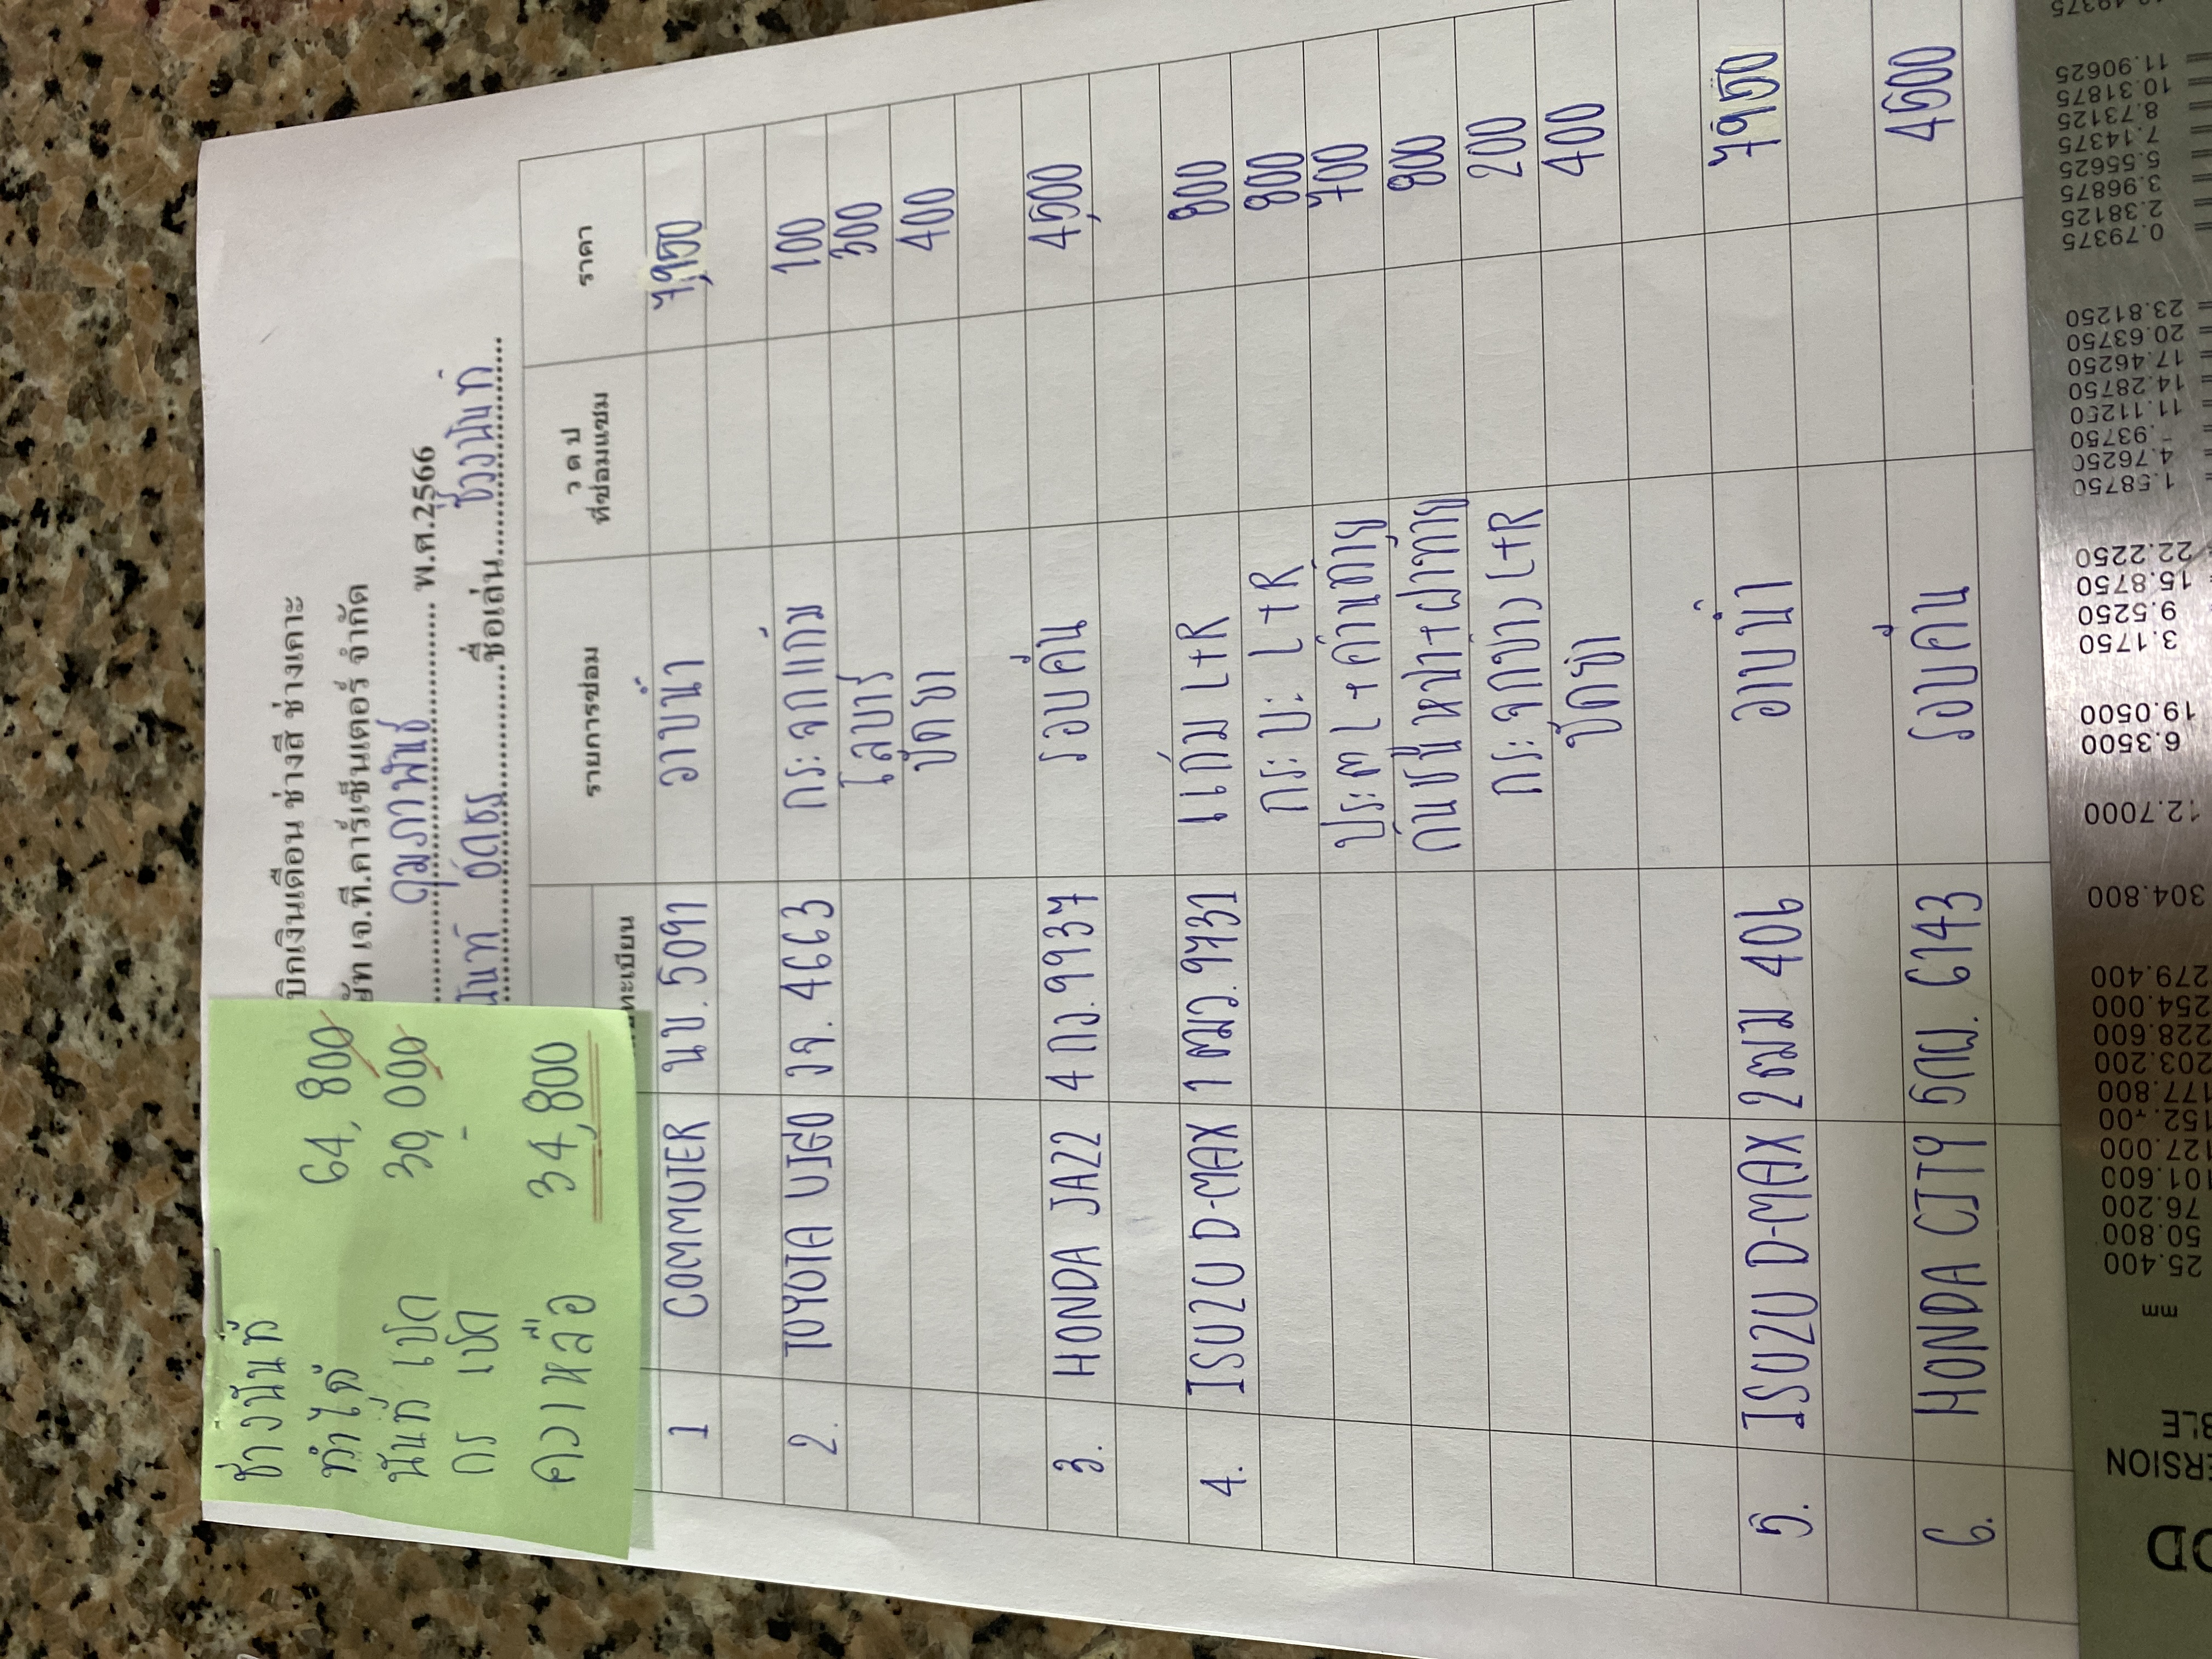 ช่างนันท์
ทำได้ 64,800
นันท์ เบิก 30,000
กร เบิก -
คงเหลือ 34,800
บิกเงินเดือน ช่างสี ช่างเคาะ
ษัท เจ.ที.คาร์เซ็นเตอร์ จำกัด
กุมภาพันธ์ พ.ศ.2566
นันท์ ชื่อเล่น ช่างนันท์
ทะเบียน รายการซ่อม ว ด ป ที่ซ่อมแซม ราคา
1 COMMUTER นข. 5091 อาบน้ำ 7,950
2. TOYOTA VIGO วจ. 4663 กระจกแก้ม 100
โลบาร์ 300
ขัดยา 400
3. HONDA JAZZ 4 กว. 9937 รอบคัน 4,500
4. ISUZU D-MAX 1 ฒว. 9731 แก้ม L+R 800
กระบะ L+R 800
ประตู L + ด้านท้าย 700
กันชนหน้า+ฝาท้าย 800
กระจกข้าง L+R 200
ขัดยา 400
5. ISUZU D-MAX 2 ฒม 406 อาบน้ำ 7950
6. HONDA CITY 5กผ. 6143 รอบคัน 4500
0.79375
2.38125
3.96875
5.55625
7.14375
8.73125
10.31875
11.90625
1.58750
4.76250
.93750
11.11250
14.28750
17.46250
20.63750
23.81250
3.1750
9.5250
15.8750
22.2250
6.3500
19.0500
12.7000
304.800
279.400
254.000
228.600
203.200
177.800
127.000
101.600
76.200
50.800
25.400
mm